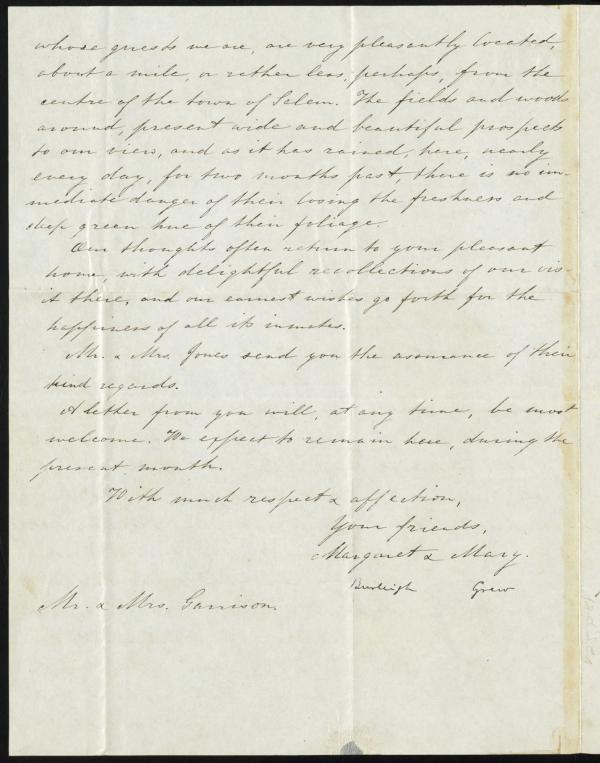 whose guests we are, are very pleasantly located,
about a mile, or rather less, perhaps, from the
centre of the town of Salem. The fields and woods
around, present wide and beautiful prospects
to our view, and as it has rained, here, nearly
every day, for two months past, there is no im-
mediate danger of their losing the freshness and
deep green hue of their foliage.
Our thoughts often return to your pleasant
home, with delightful recollections of our vis-
it there, and our earnest wishes go forth for the
happiness of all its inmates.
Mr. & Mrs. Jones send you the assurance of their
kind regards.
A letter from you will, at any time, be most
welcome. We expect to remain here, during the
present month.
With much respect & affection,
Your friends,
Margaret & Mary.
Burleigh Grew
Mr. & Mrs. Garrison.